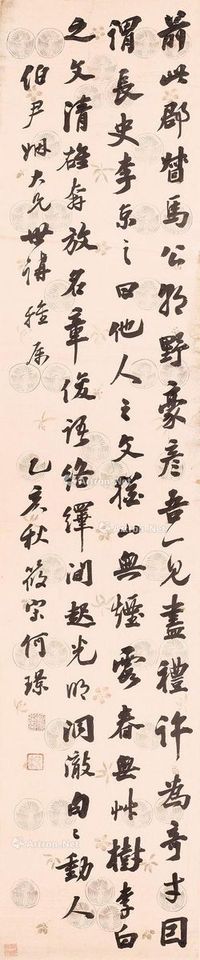 前此郡督馬公朝野豪彥一見盡禮許為奇才因
謂長史李京之曰他人之文猶山無煙霞春無艸樹李白
之文清雄奔放名章俊語絡繹間起光明洞澈句々動人
伯尹姻大兄世講雅屬　乙亥秋筱宋何璟